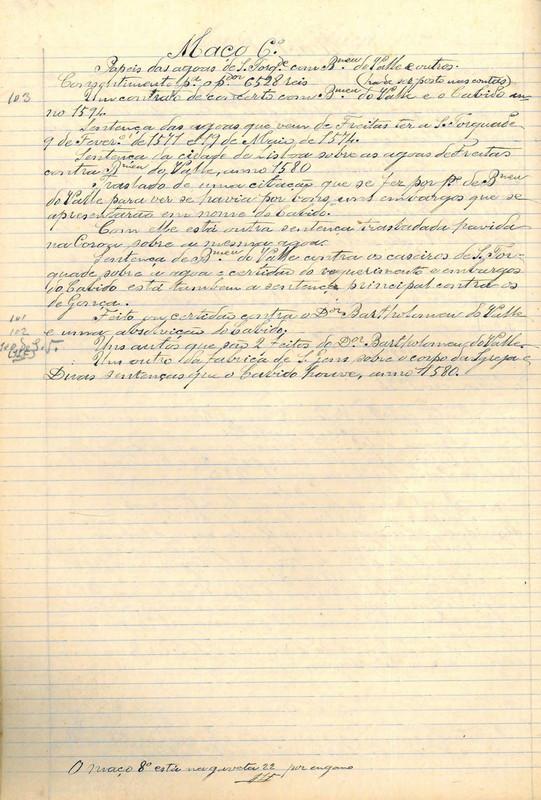 Maço 6.º
Papeis das agoas de S. Torq.e com B.meu do Valle e outros.
Consentimento p.a o p.dor 6528 reis (ha de ser posto nas contas)
103 Um contrato de concerto com B.meu do Valle e o Cabido an-
no 1594.
Sentença das agoas que vem de Freitas ter a S. Torquade
9 de Fever.o de 1577 e 19 de Maio, de 1574.
Sentença da cidade de Lisboa sobre as agoas de Freitas
contra B.meu do Valle, anno 1580
Traslado de uma citação que se fez por p.e de B.meu
do Valle para ver se havia por bons, uns embargos que se
apresentarão em nome do Cabido.
Com elle está outra sentença trasladada havida
na Coroa, sobre a mesma agoa.
Sentença de B.meu do Valle contra os caseiros de S. Tor-
quade sobre a agoa e certidão do requerimento e embargos
do Cabido está tambem a sentença principal contra os
de Gonça.
101 Feito em certidão contra o D.or Bartholomeu do Valle
102 e uma absolvição do Cabido;
Uns autos que são 2 feitos do D.or Bartholomeu do Valle.
Um outro da fabrica de S. Gens sobre o corpo da Igreja e
Duas sentenças que o Cabido houve, anno 1580.
O maço 8º está na gaveta 22 por engano